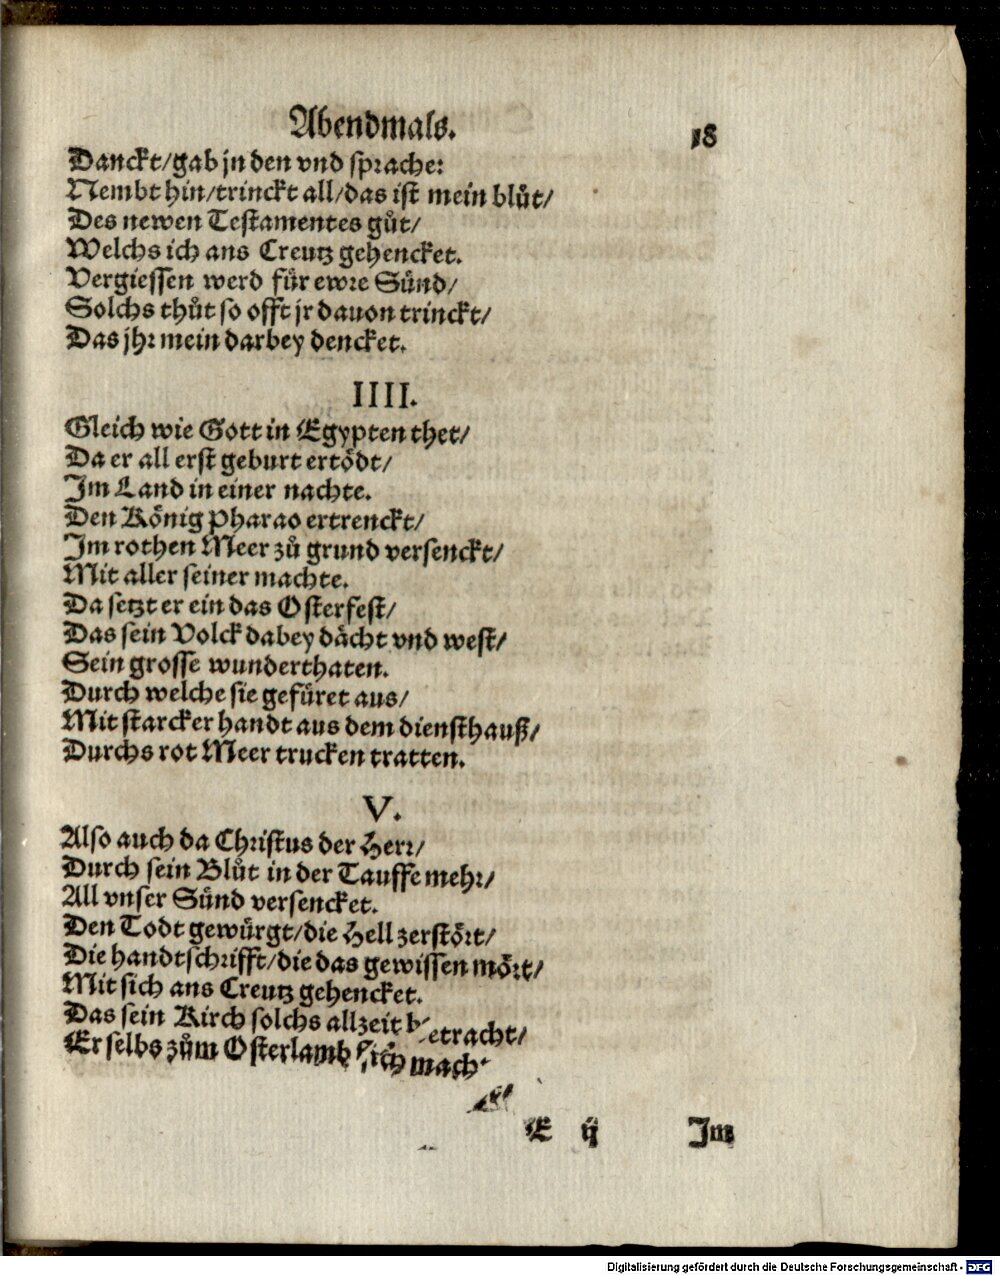 Abendmals. 18
Danckt/gab jn den vnd sprache:
Nembt hin/trinckt all/das ist mein blůt/
Des newen Testamentes gůt/
Welchs ich ans Creutz gehencket.
Vergiessen werd für ewre Sünd/
Solchs thůt so offt jr dauon trinckt/
Das jhr mein darbey dencket.
IIII.
Gleich wie Gott in Egypten thet/
Da er all erst geburt ertödt/
Im Land in einer nachte.
Den König Pharao ertrenckt/
Im rothen Meer zů grund versenckt/
Mit aller seiner machte.
Da setzt er ein das Osterfest/
Das sein Volck dabey dächt vnd west/
Sein grosse wunderthaten.
Durch welche sie gefüret aus/
Mit starcker handt aus dem diensthauß/
Durchs rot Meer trucken tratten.
V.
Also auch da Christus der Herr/
Durch sein Blůt in der Tauffe mehr/
All vnser Sünd versencket.
Den Todt gewürgt/die Hell zerstört/
Die handtschrifft/die das gewissen mört/
Mit sich ans Creutz gehencket.
Das sein Kirch solchs allzeit betracht/
Er selbs zům Osterlamb sich mach
E ij Im
Digitalisierung gefördert durch die Deutsche Forschungsgemeinschaft - DFG